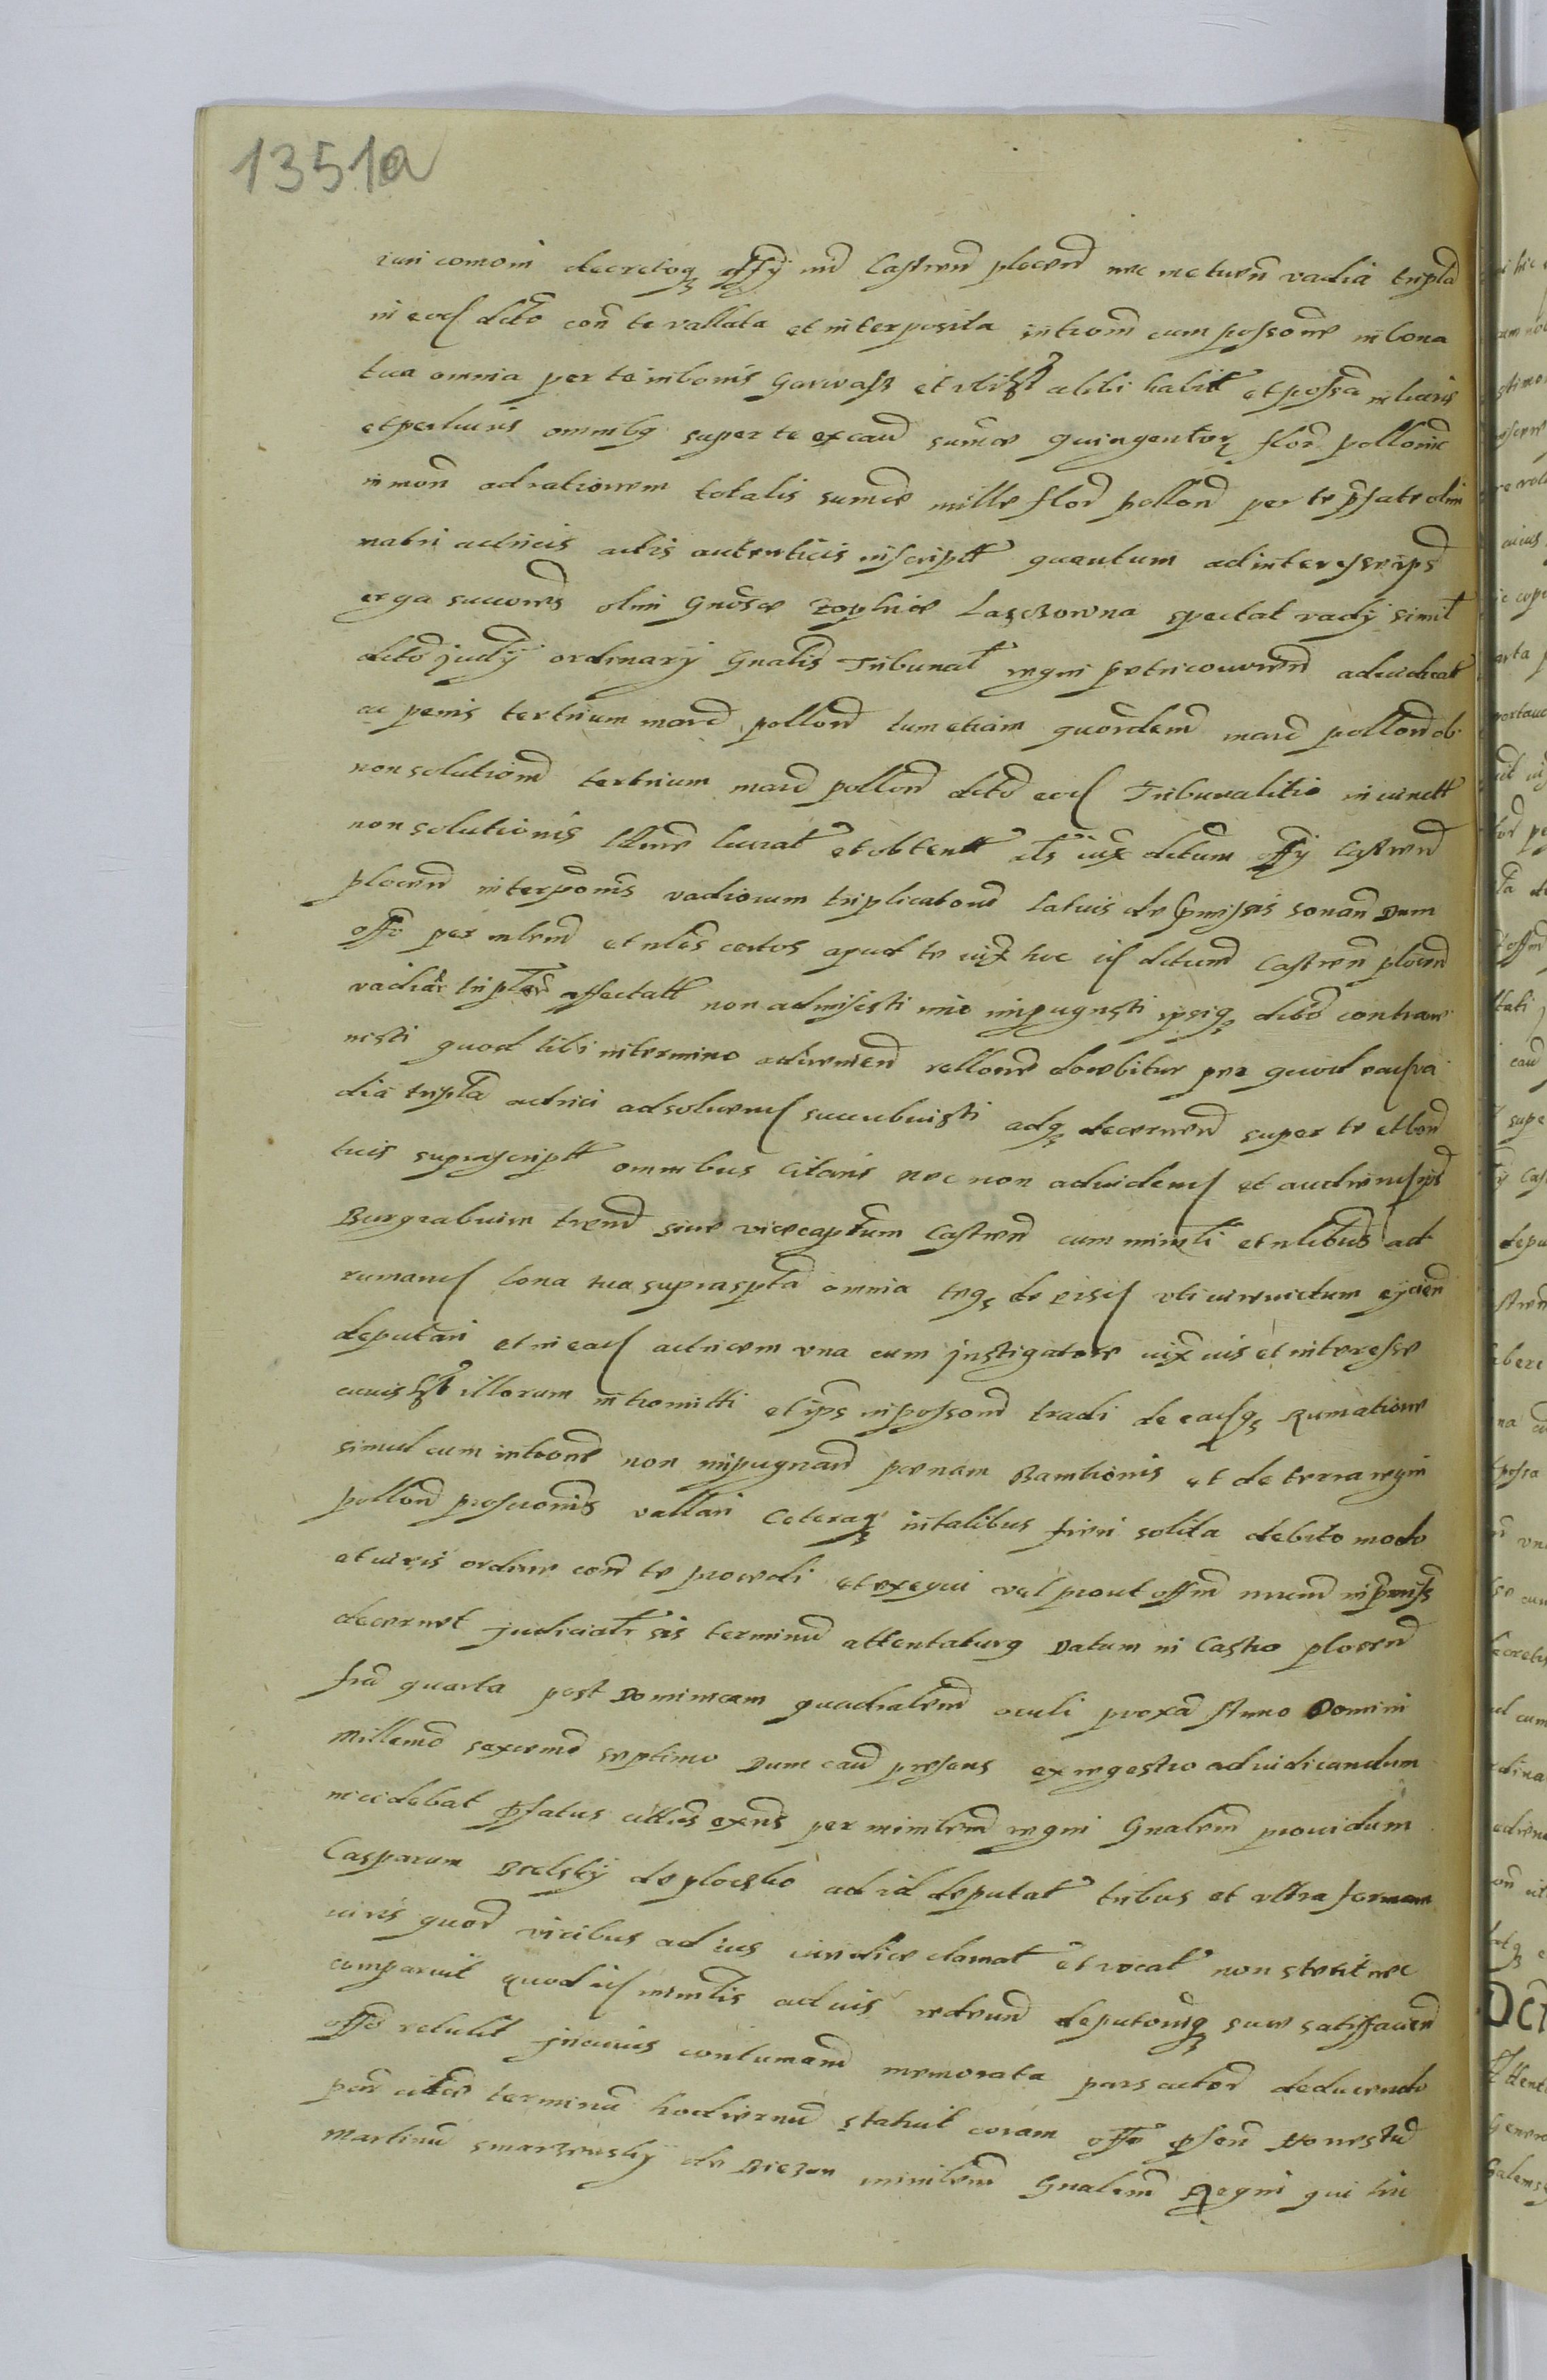 1351a
iuri comoni decretoq offy nri Castren plocen nec metuen vadia tripla
in eod dcto con te vallata et interposita introm cum possone in bona
tua omnia per te in bonis Garwasz et alibi habit et possa in haeris
et perhuius omnibq super te ex caus sumae quingentor flor pollonic
in mon ad rationem totalis sumae mille flor pollon per te pfatae olim
matri actricis actis autenticis inscriptt quantum ad interesse ips
erga succores olim Gnosae Zophiae Laszczowna spectat vady simil
dcto judy ordinary Gnalis Tribunal regni petricouien adiudicat
ac penis tertrium marc pollon tum etiam quordem marc pollon ob
non solutionem tertrium marc pollon dcto eod Tribunalitio in cunctt
non solutionis lucrat et obtentt ats iux dctum offy Castren
plocen interponis vadiorum triplicatone latius de pmissis sonan Dum
offo per mlem et nles certos apud te iux hoc id dctum Castren plocen
vadiar triplar affectatt non admisisti imo impugnsti ipsiq dcto contraue
nisti quod tibi in termino adueniend rellone docebitur per quod eadva
dia tripla actrici ad soluend succubuisti adq decernend super te et bon
tuis suprascriptt omnibus Citaris nec non ad vidend et audiend ips
Burgrabium tren siue vicecaptum Castren cum minlti et nlibus ad
rumand bona tua supraspta omnia teq de eisd vti conuictum eycien
deputari et in ead actricem vna cum Instigatore iux ius et interesse
cuius illorum intromitti et ips in posson tradi de eadq Rumatione
simul cum introne non impugnan paenam Bannionis et de terra regni
pollon proscionis vallari Ceteraq in talibus fieri solita debito modo
et iuris ordine con te procedi et exequi vel prout offm nrum in pmiss
decernet judicialr sis terminu attentaturq Datum in Castro plocen
fria quarta post Dominicam quadralem oculi proxa Anno Domini
Millemo sexcenmo septimo Dum caus presens ex regestro ad iudicandum
incidebat pfatus cittus exens per minlem regni Gnalem prouidum
Casparum Bielsky de plocsko ad id deputat tribus et vltra formam
iuris quor vicibus ad ius iuridice clamat et vocat non stetit nec
comparuit quod id minlis ad ius redeund deputoniq suae satisfaciend
offo retulit Incuius contumam memorata pars actor deducendo
par citae terminu hodiernu statuit coram offo psen Honestu
Martinu Smarzewsky de Biezun minlem Gnalem Regni qui hic